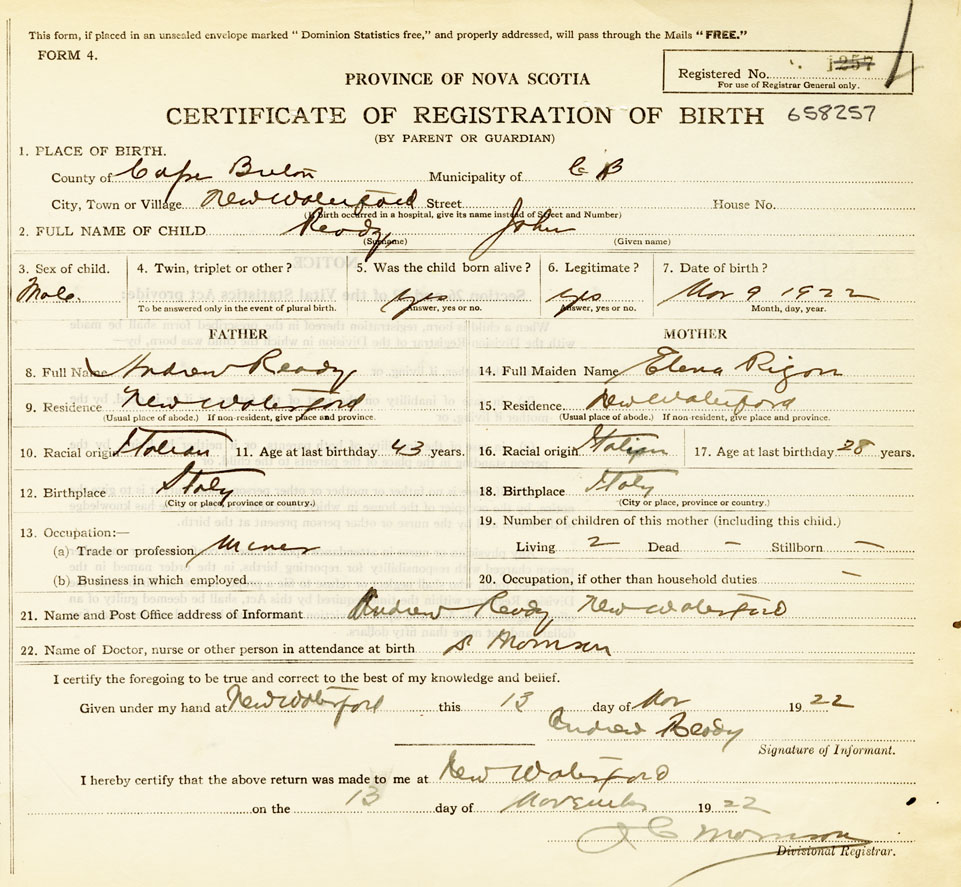 This form, if placed in an unsealed envelope marked "Dominion Statistics free," and properly addressed, will pass through the Mails "FREE."
FORM 4.
Registered No. 1257
For use of Registrar General only.
PROVINCE OF NOVA SCOTIA
CERTIFICATE OF REGISTRATION OF BIRTH 658257
(BY PARENT OR GUARDIAN)
1. PLACE OF BIRTH.
County of Cape Breton Municipality of C B
City, Town or Village New Waterford Street House No.
(If birth occurred in a hospital, give its name instead of Street and Number)
2. FULL NAME OF CHILD Ready, John
(Surname) (Given name)
3. Sex of child. 4. Twin, triplet or other? 5. Was the child born alive? 6. Legitimate? 7. Date of birth?
Male. yes yes Nov 9 1922
To be answered only in the event of plural birth. Answer, yes or no. Answer, yes or no. Month, day, year.
FATHER MOTHER
8. Full Name Andrew Ready 14. Full Maiden Name Elena Rigon
9. Residence New Waterford 15. Residence New Waterford
(Usual place of abode.) If non-resident, give place and province. (Usual place of abode.) If non-resident, give place and province.
10. Racial origin Italian 11. Age at last birthday 43 years. 16. Racial origin Italian 17. Age at last birthday 28 years.
12. Birthplace Italy 18. Birthplace Italy
(City or place, province or country.) (City or place, province or country.)
13. Occupation:— 19. Number of children of this mother (including this child.)
(a) Trade or profession Miner Living 2 Dead – Stillborn –
(b) Business in which employed 20. Occupation, if other than household duties –
21. Name and Post Office address of Informant Andrew Ready New Waterford
22. Name of Doctor, nurse or other person in attendance at birth Morrison
I certify the foregoing to be true and correct to the best of my knowledge and belief.
Given under my hand at New Waterford this 13 day of Nov 1922
Andrew Ready
Signature of Informant.
I hereby certify that the above return was made to me at New Waterford
on the 13 day of November 1922
J C Morrison
Divisional Registrar.